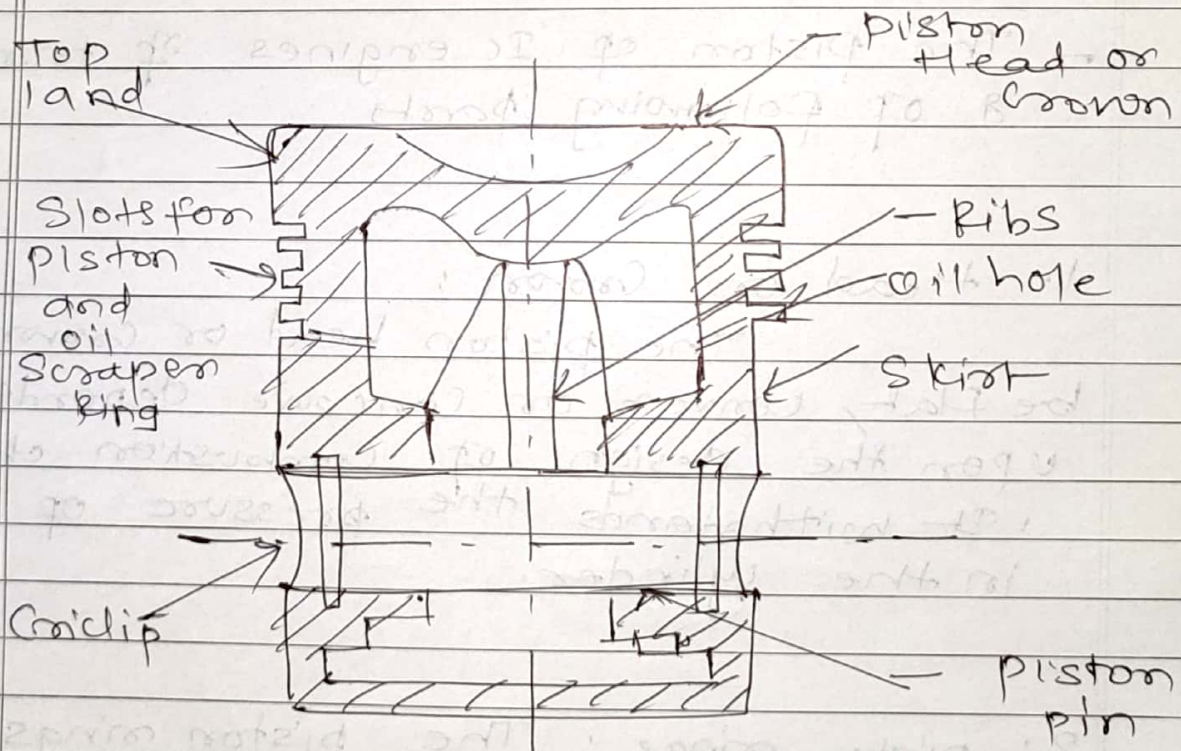 Top
land
Piston
Head or
Crown
Slots for
piston
and
oil
Scraper
Ring
Ribs
oil hole
Skirt
Circlip
Piston
pin